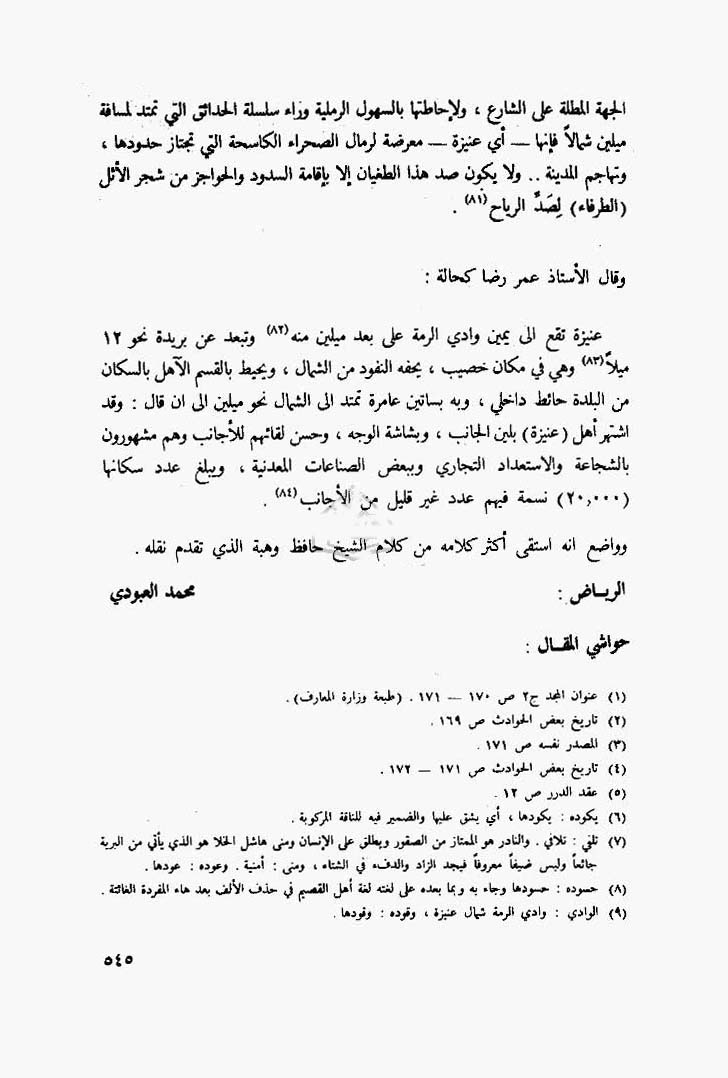 الجهة المطلة على الشارع ، ولإحاطتها بالسهول الرملية وراء سلسلة الحدائق التي تمتد لمسافة
ميلين شمالاً فإنها — أي عنيزة — معرضة لرمال الصحراء الكاسحة التي تجتاز حدودها ،
وتهاجم المدينة .. ولا يكون صد هذا الطغيان إلا بإقامة السدود والحواجز من شجر الأثل
(الطرفاء) لِصَدِّ الرياح(٨١) .
وقال الأستاذ عمر رضا كحالة :
عنيزة تقع الى يمين وادي الرمة على بعد ميلين منه(٨٢) وتبعد عن بريدة نحو ١٢
ميلاً(٨٣) وهي في مكان خصيب ، يحفه النفود من الشمال ، ويحيط بالقسم الآهل بالسكان
من البلدة حائط داخلي ، وبه بساتين عامرة تمتد الى الشمال نحو ميلين الى ان قال : وقد
اشتهر أهل (عنيزة) بلين الجانب ، وبشاشة الوجه ، وحسن لقائهم للأجانب وهم مشهورون
بالشجاعة والاستعداد التجاري وببعض الصناعات المعدنية ، ويبلغ عدد سكانها
(٢٠,٠٠٠) نسمة فيهم عدد غير قليل من الأجانب(٨٤) .
وواضع انه استقى أكثر كلامه من كلام الشيخ حافظ وهبة الذي تقدم نقله .
الريـاض : محمد العبودي
حواشي المقـال :
(١) عنوان المجد ج٢ ص ١٧٠ — ١٧١ . (طبعة وزارة المعارف) .
(٢) تاريخ بعض الحوادث ص ١٦٩ .
(٣) المصدر نفسه ص ١٧١ .
(٤) تاريخ بعض الحوادث ص ١٧١ — ١٧٢ .
(٥) عقد الدرر ص ١٢ .
(٦) يكوده : يكودها ، أي يشق عليها والضمير فيه للناقة المركوبة .
(٧) تلفي : تلافي . والنادر هو الممتاز من الصقور ويطلق على الإنسان ومنى هاشل الخلا هو الذي يأتي من البرية
جائعاً وليس ضيفاً معروفاً فيجد الزاد والدفء في الشتاء ، ومنى : أمنية . وعوده : عودها .
(٨) حسوده : حسودها وجاء به وبما بعده على لغته لغة أهل القصيم في حذف الألف بعد هاء المفردة الغائتة .
(٩) الوادي : وادي الرمة شمال عنيزة ، وقوده : وقودها .
٥٤٥